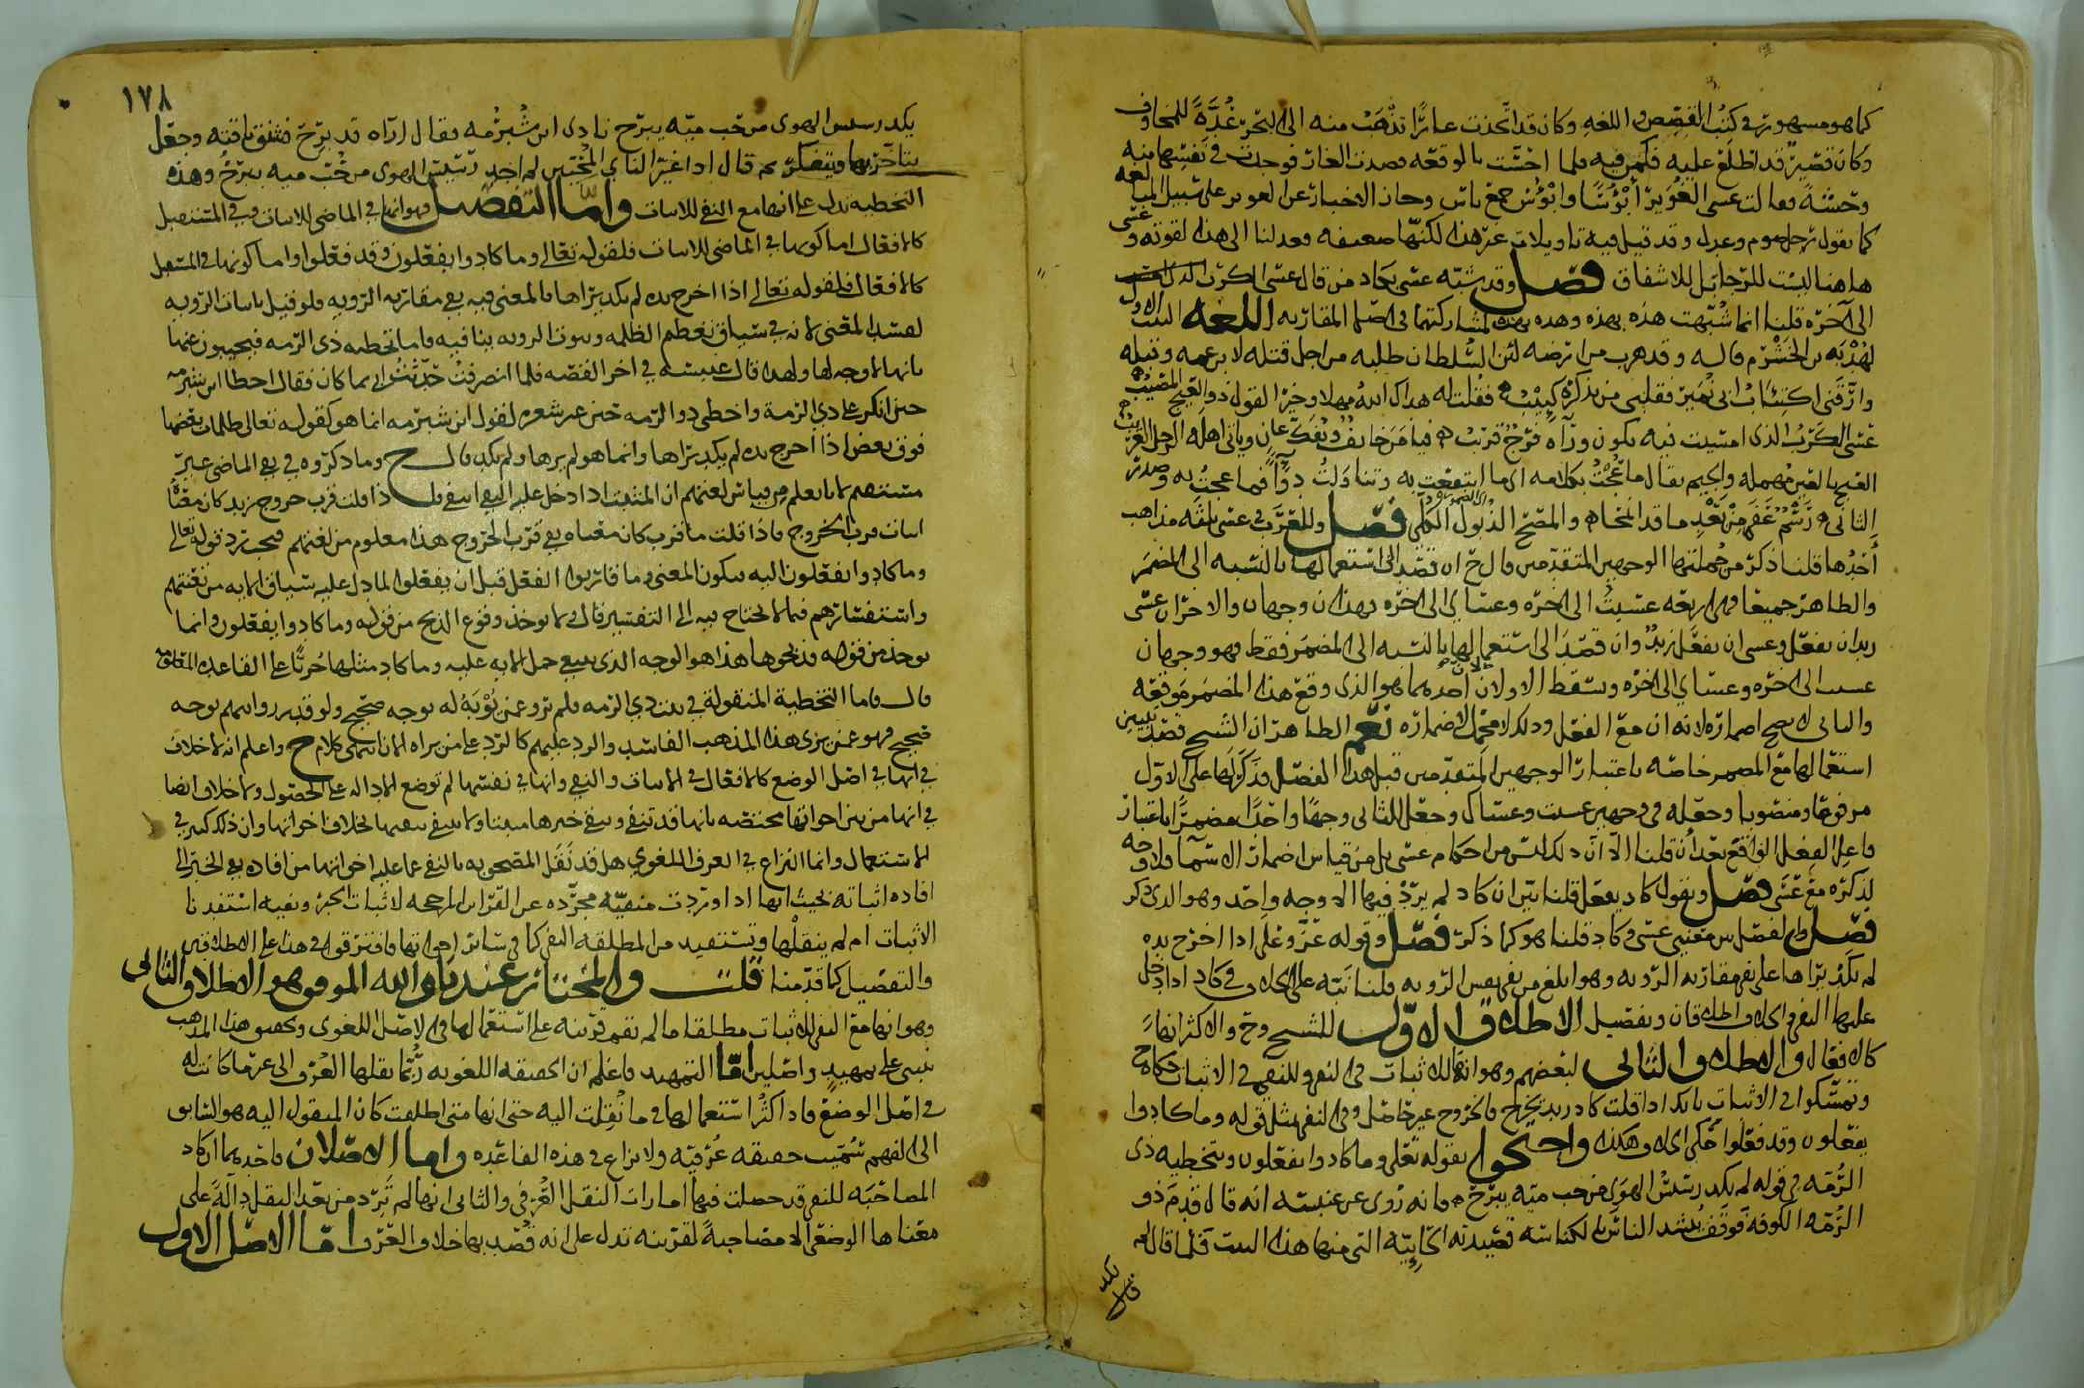 كما هو مشهور في كتب القصص واللغه وكان قد اتخذت غارًا تذهب منه الى البحر عُدَّةً للمخاوف
وكان قصير قد اطلع عليه فكمن فيه فلما احست بالوقعه قصدت الغار فوجدت في نفسها منه
وحشة فقالت عسى الغوير أبؤسًا وابؤس جمع باس وجاز الاخبار عن الغوير على سبيل المبالغه
كما تقول رجل صوم وعدل وقد قيل فيه تاويلات غير هذا لكنها ضعيفه فعدلنا الى هذا لقوته وعسى
هاهنا ليست للرجا بل للاشفاق فصل وقد شبه عسى بكاد من قال عسى الكرب الذي امسيت
الى آخره قلنا انما شبهت هذه بهذه وهذه بهذه لمشاركتهما في اصل المقاربه اللغه البيت الاول
لهدبه بن الخشرم قاله وقد هرب من ارضه لئن السلطان طلبه من اجل قتله لابن عمه وقبله
وارقني اكتئاب ابي نمير فقلبي من تذكره كئيب فقلت له هداك الله مهلا وخير القول ذو العيج المصيب
عسى الكرب الذي امسيت فيه يكون وراه فرج قريب فيامن خايف ويفك عان وياتي اهله الرجل الغريب
العيج بالعين مهمله والجيم يقال ما عجت بكلامه اي ما انتفعت به وتناولت دوآً فما عجت به وصدر
الثاني رسم عفى من بعد ما قد انمحا والمصح الذبول الكلي فصل وللعرب في عسى ثلثه مذاهب
أحدها قلنا ذكر من جملتها الوجهين المتقدمين قال ح ان قصد الى استعمالها بالنسبه الى المضمر
والظاهر جميعا فهي اربعه عسيت الى اخره وعساي الى اخره فهذان وجهان والاخران عسى
زيد ان يفعل وعسى ان يفعل زيد وان قصد الى استعمالها بالنسبه الى المضمر فقط فهو وجهان
عسيت الى اخره وعساي الى اخره وسقط الاولان لان احدهما هو الذي وقع هذا المضمر موقعه
والثاني لا يصح اضماره لانه ان مع الفعل وذلك لا محل لاضماره نعم الظاهر ان الشيخ قصد تبيين
استعمالها مع المضمر خاصه باعتبار الوجهين المتقدمين قبل هذا الفصل فذكر لها على الاول
مرفوعا ومنصوبا وجعله في وجهين عسيت وعساك وجعل للثاني وجهًا واحدًا مضمرًا باعتبار
فاعل الفعل الواقع بعد أن قلنا الا أن ذلك ليس من احكام عسى بل من قياس اضمار الاسما فلا وجه
لذكره مع عسى فصل وتقول كاد يفعل قلنا بين ان كاد لم يرد فيها الا وجه واحد وهو الذي ذكر
فصل والفصل بين معنيي عسى وكاد قلنا هو كما ذكر فصل وقوله عز وعلى اذا اخرج يده
لم يكد يراها على نفي مقاربه الرؤيه وهو ابلغ من نفي نفس الرؤيه قلنا نبه على الخلاف في كاد اذا دخل
عليها النفي والخلاف اطلاقان وتفصيل الاطلاق الاول للشيخ وح والاكثر انها
كالافعال والاطلاق الثاني لبعضهم وهو انها للاثبات في النفي وللنفي في الاثبات حكاه ح
وتمسكوا في الاثبات بانك اذا قلت كاد زيد يخرج فالخروج غير حاصل وفي النفي بمثل قوله وما كادوا
يفعلون وقد فعلوا حكى الخلاف هكذا واحتجوا بقوله تعالى وما كادوا يفعلون وتخطيه ذي
الرُّمَّه في قوله لم يكد رسيس الهوى من حب ميه يبرح فانه روى عن عنبسه انه قال قدم ذو
الرُّمَّه الكوفه فوقف ينشد الناس بالكناسه قصيدته الحاييه التي منها هذا البيت فلما قال لم
يكد
١٧٨
يكد رسيس الهوى من حب ميه يبرح نادى ابن شبرمه فقال اراه قد برح فشنق ناقته وجعل
يتاخر بها ويتفكر ثم قال اذا غير الناي المحبين لم اجد رسيس الهوى من حب ميه يبرح وهذه
التخطيه تدل على انها مع النفي للاثبات واما التفصيل فهو انها في الماضي للاثبات وفي المستقبل
كالافعال اما كونها في الماضي للاثبات فلقوله تعالى وما كادوا يفعلون وقد فعلوا واما كونها في المستقبل
كالافعال فلقوله تعالى اذا اخرج يده لم يكد يراها فالمعنى فيه نفي مقاربه الرويه فلو قيل باثبات الرويه
لفسد المعنى لانه في سياق تعظيم الظلمه وثبوت الرويه ينافيه واما تخطيه ذي الرمه فيجيبون عنها
بانها لا وجه لها ولهذا قال عنبسه في اخر القصه فلما انصرفت حدثت ابي بما كان فقال اخطا ابن شبرمه
حين انكر على ذي الرمة واخطى ذو الرمه حين غير شعره لقول ابن شبرمه انما هو كقوله تعالى ظلمات بعضها
فوق بعض اذا اخرج يده لم يكد يراها وانما هو لم يرها ولم يكد قال ح وما ذكروه في نفي الماضي غير
مستقيم لانا نعلم من قياس لغتهم ان المثبت اذا دخل عليه النفي انتفى فاذا قلت قرب خروج زيد كان معناه
اثبات قرب الخروج فاذا قلت ما قرب كان معناه نفي قرب الخروج هذا معلوم من لغتهم فيجب رد قوله تعالى
وما كادوا يفعلون اليه فيكون المعنى وما قاربوا الفعل قبل ان يفعلوا لما دل عليه سياق الايه من تعنتهم
واستفسارهم فيما لا يحتاج فيه الى التفسير قال ولا يوخذ وقوع الذبح من قوله وما كادوا يفعلون وانما
يوخذ من قوله فذبحوها هذا هو الوجه الذي ينبغي حمل الايه عليه وما كاد مثلها جريًا على القاعده المعلومه
قال واما التخطية المنقولة في بيت ذي الرمه فلم ترو عمن يُؤبَهُ له بوجه صحيح ولو قدر روايتهم بوجه
صحيح فهو عمن يرى هذا المذهب الفاسد والرد عليهم كالرد على من يراه الان انتهى كلام ح واعلم انه لا خلاف
في انها في اصل الوضع كالافعال في الاثبات والنفي وانها في نفسها لم توضع للدلاله على الحصول ولا خلاف ايضا
في انها من بين اخواتها مختصه بانها قد تنفي وينفى خبرها مثبتا ولا ينفي بنفيها بخلاف اخواتها وان ذلك كثير في
الاستعمال وانما النزاع في العرف اللغوي هل قد نقل المصحوبه بالنفي عما عليه اخواتها من افاده نفي الخبر الى
افاده اثباته بحيث انها اذا وردت منفيه مجرده عن القراين المرجحه لاثبات الخبر ونفيه استفدنا
الاثبات ام لم ينقلها ونستفيد من المطلقه النفي كما في سائر اخواتها فافترقوا في هذا على الاطلاقين
والتفصيل كما قدمنا قلت والمختار عندنا والله الموفق هو الاطلاق الثاني
وهو انها مع النفي للاثبات مطلقا ما لم تقم قرينه على استعمالها في الاصل اللغوي وتحقيق هذا المذهب
نبني على تمهيدٍ واصلين أمّا التمهيد فاعلم ان الحقيقه اللغويه رُبّما نقلها العُرف الى غير ما كانت له
في اصل الوضع فاذا كثر استعمالها في ما نُقِلت اليه حتى انها متى اطلقت كان المنقول اليه هو السابق
الى الفهم سُمّيت حقيقه عُرفيه ولا نزاع في هذه القاعده واما الاصلان فاحدهما ان كاد
المصاحبَه للنفي قد حصلت فيها امارات النقل العُرفي والثاني انها لم تَرِد من بعد النقل دالةً على
معناها الوضعي الا مصاحبةً لقرينه تدل على انه قُصد بها خلاف العُرف امّا الاصل الاول